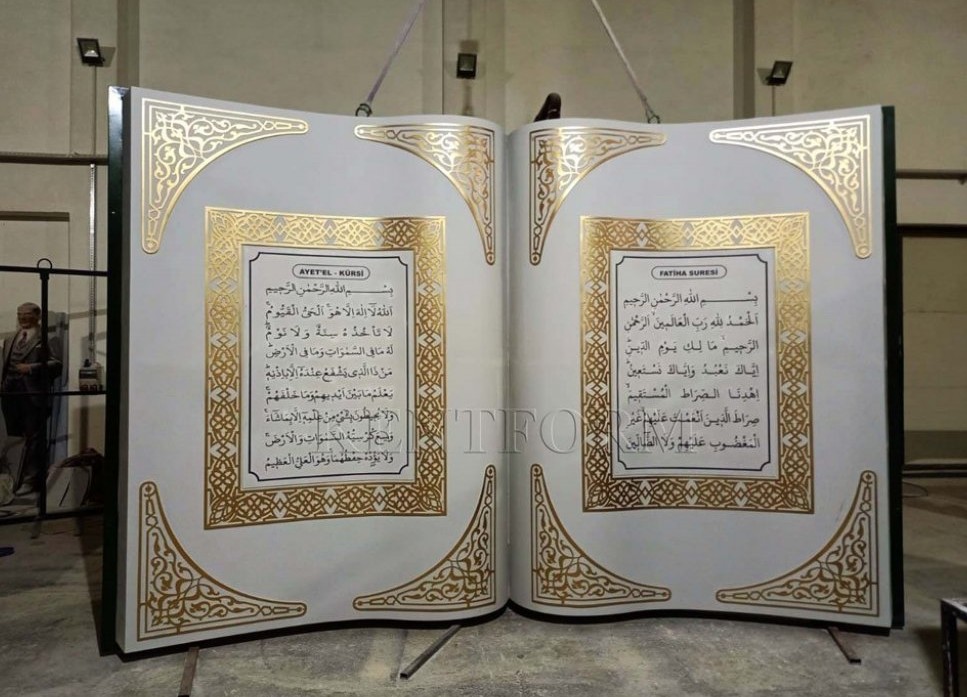 AYET'EL - KÜRSİ
بِسْــمِ اللّٰهِ الرَّحْمٰنِ الرَّحٖيمِ
اَللّٰهُ لَٓا اِلٰهَ اِلَّا هُوَۚ اَلْحَيُّ الْقَيُّومُۚ
لَا تَأْخُذُهُ سِنَةٌ وَلَا نَوْمٌۜ
لَهُ مَا فِي السَّمٰوَاتِ وَمَا فِي الْاَرْضِۜ
مَنْ ذَا الَّذٖي يَشْفَعُ عِنْدَهُٓ اِلَّا بِاِذْنِهٖۜ
يَعْلَمُ مَا بَيْنَ اَيْدٖيهِمْ وَمَا خَلْفَهُمْۚ
وَلَا يُحٖيطُونَ بِشَيْءٍ مِنْ عِلْمِهٖٓ اِلَّا بِمَا شَٓاءَۚ
وَسِعَ كُرْسِيُّهُ السَّمٰوَاتِ وَالْاَرْضَۚ
وَلَا يَؤُ۫دُهُ حِفْظُهُمَاۚ وَهُوَ الْعَلِيُّ الْعَظٖيمُ
FATİHA SURESİ
بِسْــــمِ اللّٰهِ الرَّحْمٰنِ الرَّحٖيمِ
اَلْحَمْدُ لِلّٰهِ رَبِّ الْعَالَمٖينَۙ اَلرَّحْمٰنِ
الرَّحٖيمِۙ مَالِكِ يَوْمِ الدّٖينِۜ
اِيَّاكَ نَعْبُدُ وَاِيَّاكَ نَسْتَعٖينُۜ
اِهْدِنَا الصِّرَاطَ الْمُسْتَقٖيمَۙ
صِرَاطَ الَّذٖينَ اَنْعَمْتَ عَلَيْهِمْ غَيْرِ
الْمَغْضُوبِ عَلَيْهِمْ وَلَا الضَّٓالّٖينَ
KENTFORM